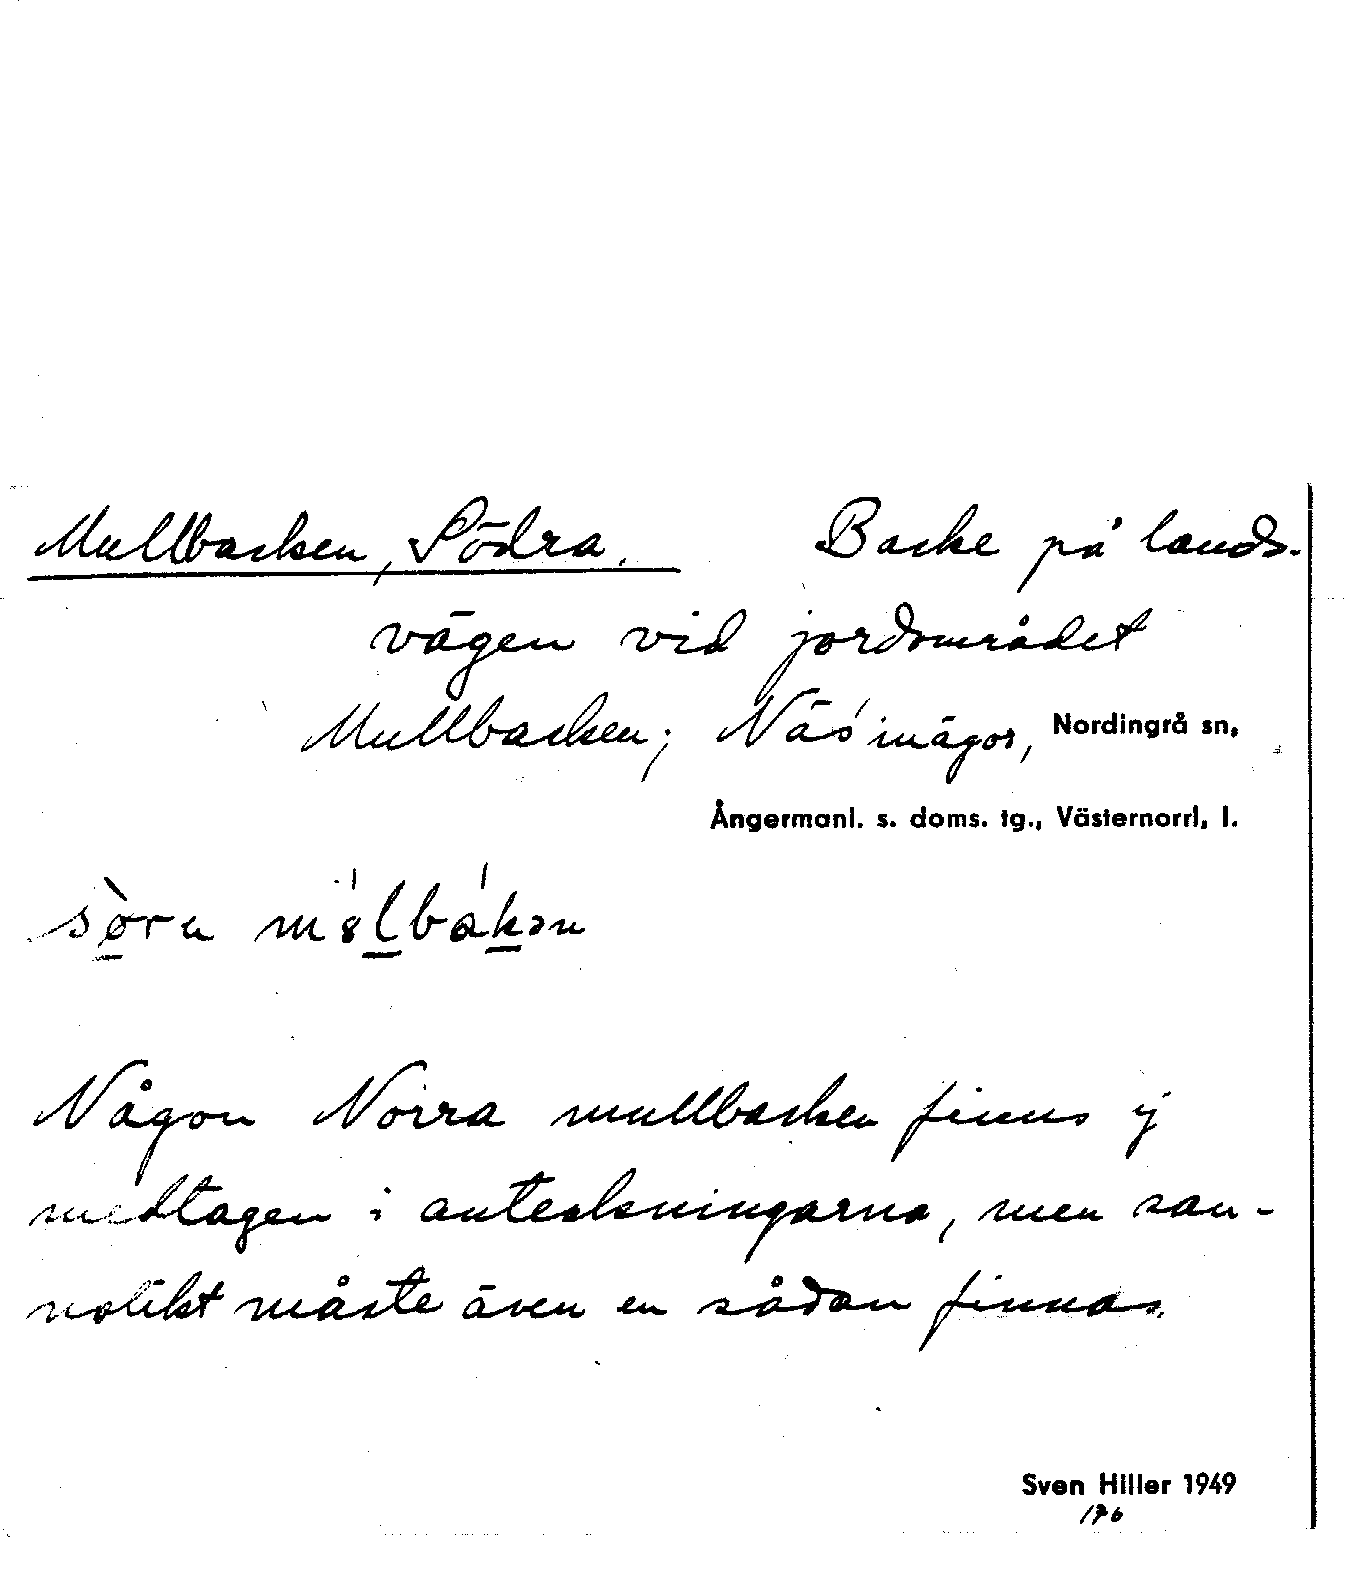 Mullbacken, Södra. Backe på lands-
vägen vid jordområdet
Mullbacken; Näs' inägor, Nordingrå sn,
Ångermanl. s. doms. tg., Västernorrl. l.
Någon Norra mullbacken finns ej
medtagen i anteckningarna, men san-
nolikt måste även en sådan finnas.
Sven Hiller 1949
176